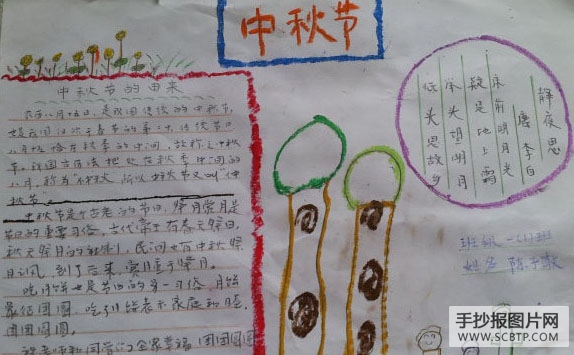 中秋节
中秋节的由来
农历八月十五日，是我国传统的中秋节，
是我国仅次于春节的第二大传统节日
八月恰恰在秋季的中间，故称之中秋
节。我国古历法把处在秋季中间的
八月，称为"仲秋"所以中秋节又叫"仲
秋节
中秋节是个古老的节日，祭月赏月是
节日的重要习俗。古代帝王有春天祭日，
秋天祭月的社制，民间也有中秋祭
月之风，到了后来，赏月重于祭月。
吃月饼也是节日的另一习俗，月饼
象征团圆，吃月饼表示家庭和睦，
团团圆圆。
祝老师和同学们全家幸福 团团圆圆
静夜思
唐 李白
床前明月光
疑是地上霜
举头望明月
低头思故乡
班级
姓名 陈
手抄报图片网
WWW.SCBTP.COM